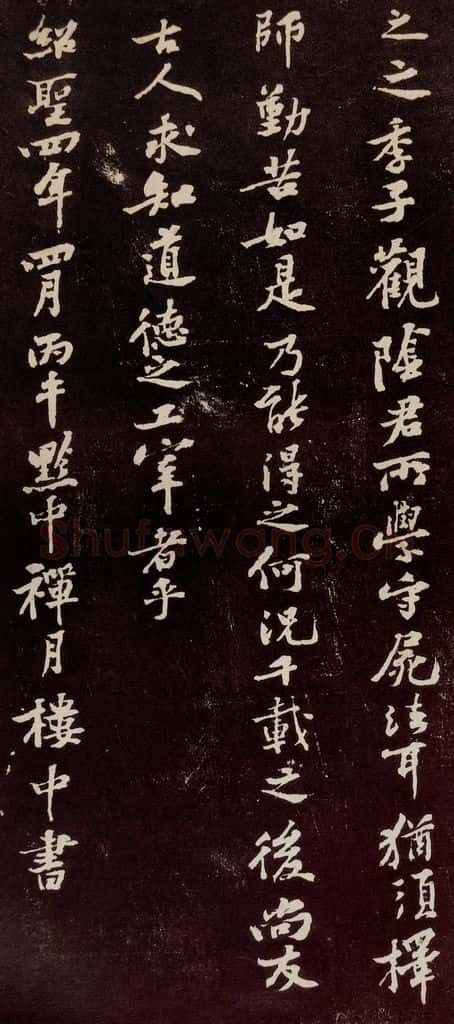 之之季子觀陰君所學守屍法耳猶須擇
師勤苦如是乃能得之何況千載之後尚友
古人求知道德之工宰者乎
紹聖四年四月丙午黔中禪月樓中書
Shufawang.cn